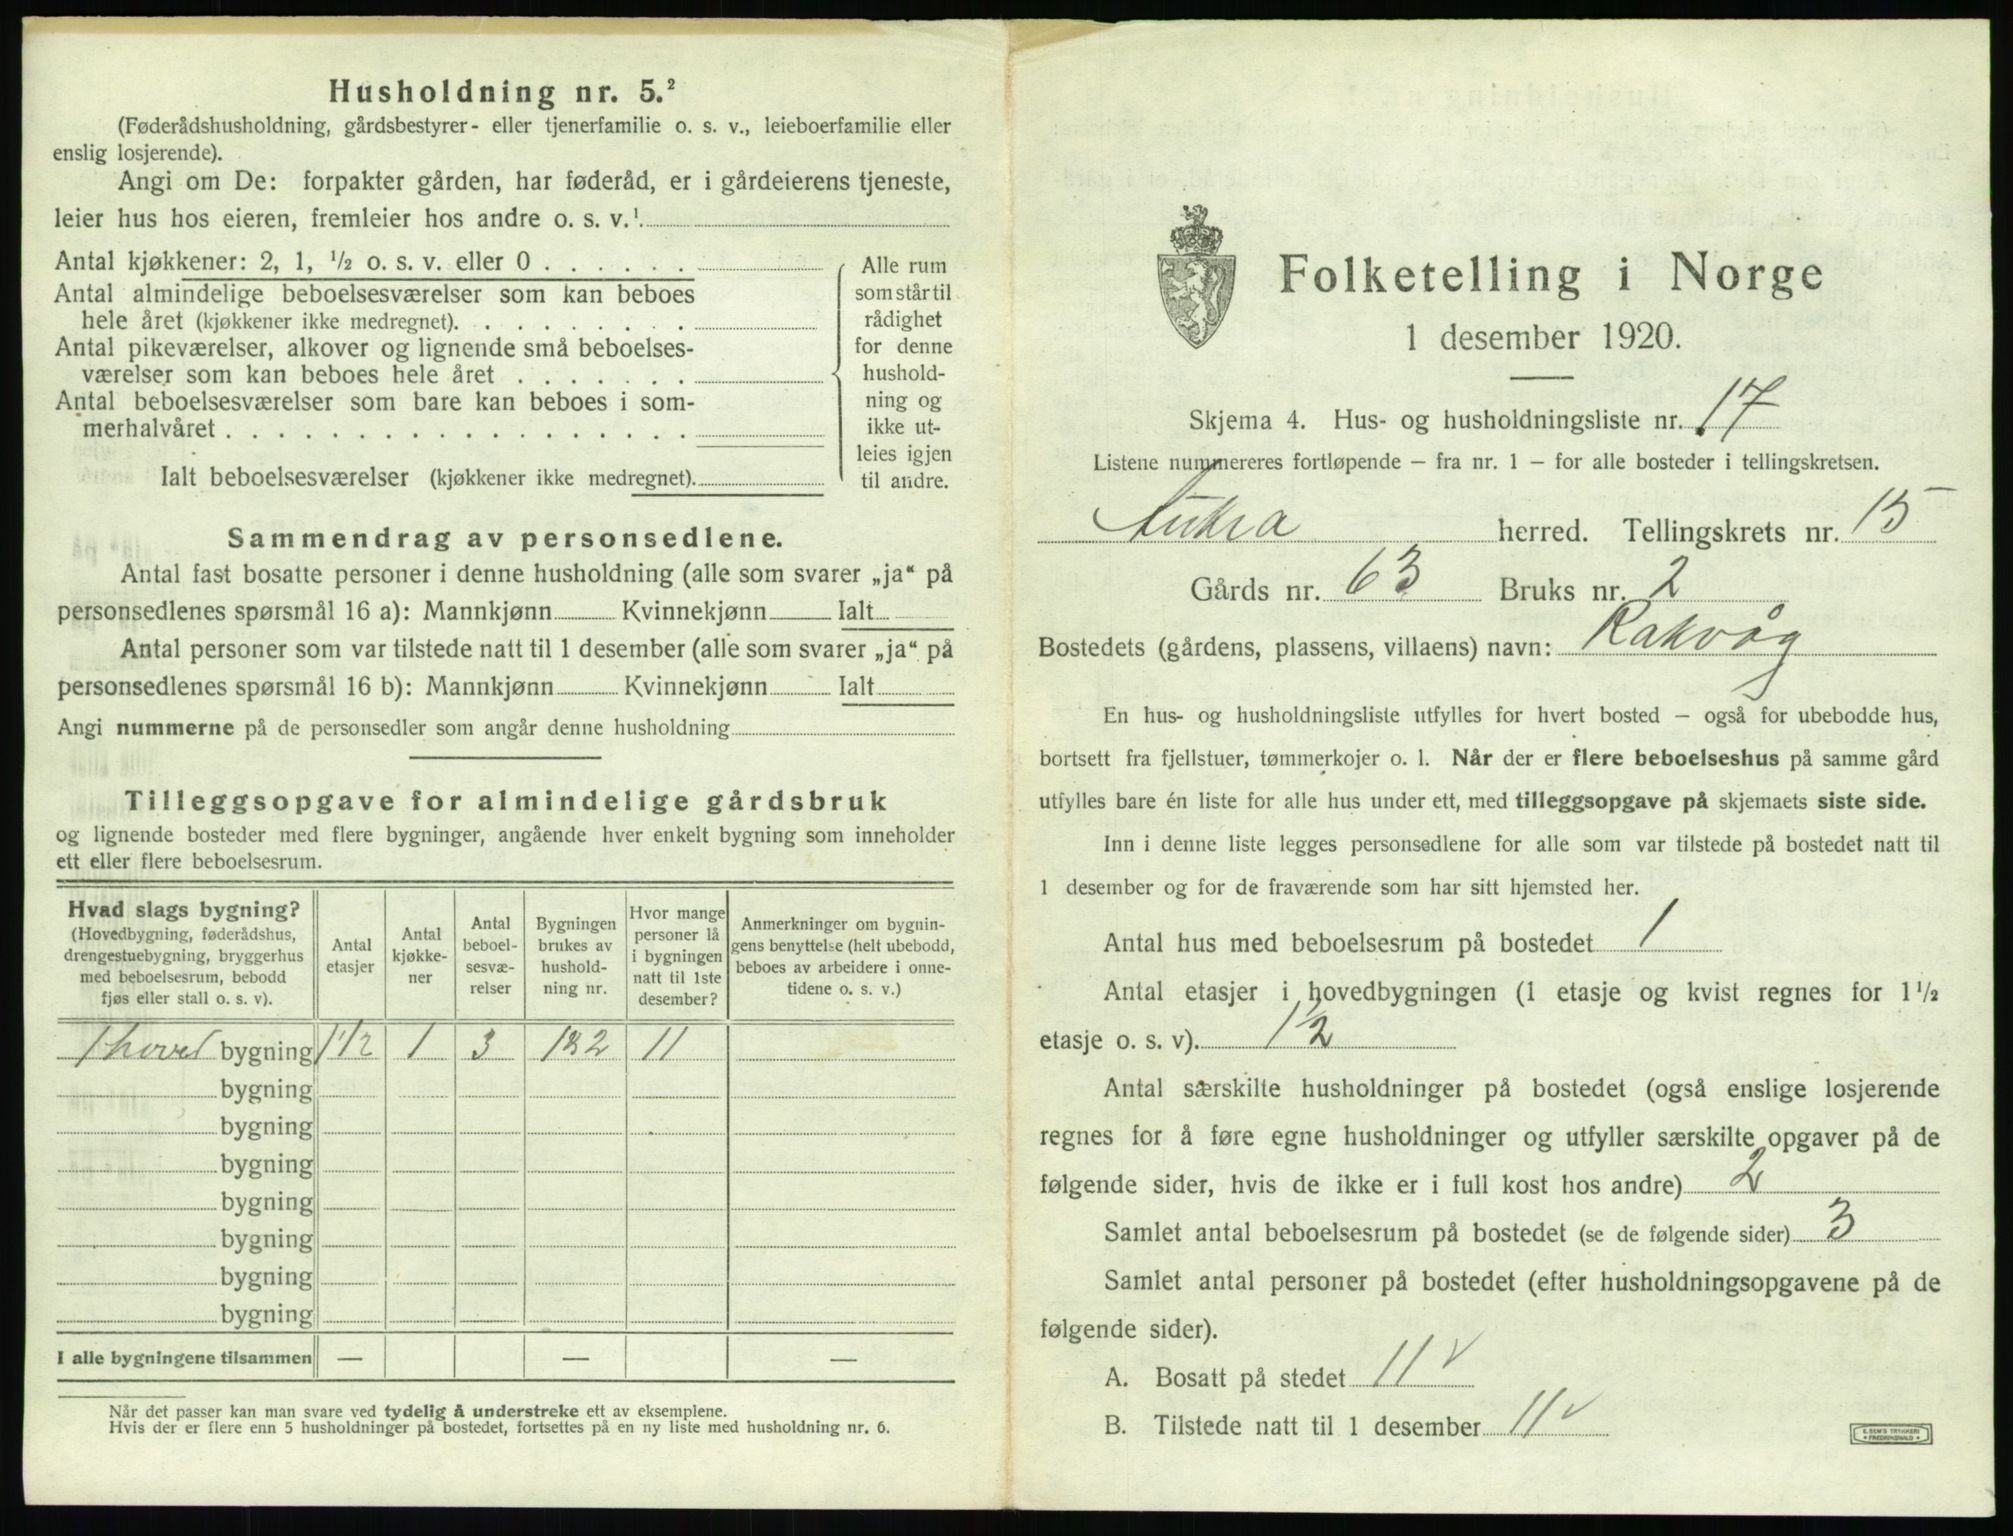 Husholdning nr. 5.²
(Føderådshusholdning, gårdsbestyrer- eller tjenerfamilie o. s. v., leieboerfamilie eller
enslig losjerende).
Angi om De: forpakter gården, har føderåd, er i gårdeierens tjeneste,
leier hus hos eieren, fremleier hos andre o. s. v.¹
Antal kjøkkener: 2, 1, ½ o. s. v. eller 0
Antal almindelige beboelsesværelser som kan beboes
hele året (kjøkkener ikke medregnet).
Antal pikeværelser, alkover og lignende små beboelses-
værelser som kan beboes hele året
Antal beboelsesværelser som bare kan beboes i som-
merhalvåret
Ialt beboelsesværelser (kjøkkener ikke medregnet).
Alle rum
som står til
rådighet
for denne
hushold-
ning og
ikke ut-
leies igjen
til andre.
Sammendrag av personsedlene.
Antal fast bosatte personer i denne husholdning (alle som svarer „ja“ på
personsedlenes spørsmål 16 a): Mannkjønn Kvinnekjønn Ialt
Antal personer som var tilstede natt til 1 desember (alle som svarer „ja“ på
personsedlenes spørsmål 16 b): Mannkjønn Kvinnekjønn Ialt
Angi nummerne på de personsedler som angår denne husholdning
Tilleggsopgave for almindelige gårdsbruk
og lignende bosteder med flere bygninger, angående hver enkelt bygning som inneholder
ett eller flere beboelsesrum.
Hvad slags bygning?
(Hovedbygning, føderådshus,
drengestuebygning, bryggerhus
med beboelsesrum, bebodd
fjøs eller stall o. s. v).
Antal
etasjer
Antal
kjøkke-
ner
Antal
beboel-
sesvæ-
relser
Bygningen
brukes av
hushold-
ning nr.
Hvor mange
personer lå
i bygningen
natt til 1ste
desember?
Anmerkninger om bygnin-
gens benyttelse (helt ubebodd,
beboes av arbeidere i onne-
tidene o. s. v.)
1 hoved bygning 1 1/2 1 3 1&2 11
bygning
bygning
bygning
bygning
bygning
bygning
bygning
I alle bygningene tilsammen — — —
Når det passer kan man svare ved tydelig å understreke ett av eksemplene.
Hvis der er flere enn 5 husholdninger på bostedet, fortsettes på en ny liste med husholdning nr. 6.
Folketelling i Norge
1 desember 1920.
Skjema 4. Hus- og husholdningsliste nr. 17
Listene nummereres fortløpende — fra nr. 1 — for alle bosteder i tellingskretsen.
Aukra herred. Tellingskrets nr. 15
Gårds nr. 63 Bruks nr. 2
Bostedets (gårdens, plassens, villaens) navn: Rakvåg
En hus- og husholdningsliste utfylles for hvert bosted — også for ubebodde hus,
bortsett fra fjellstuer, tømmerkojer o. l. Når der er flere beboelseshus på samme gård
utfylles bare én liste for alle hus under ett, med tilleggsopgave på skjemaets siste side.
Inn i denne liste legges personsedlene for alle som var tilstede på bostedet natt til
1 desember og for de fraværende som har sitt hjemsted her.
Antal hus med beboelsesrum på bostedet 1
Antal etasjer i hovedbygningen (1 etasje og kvist regnes for 1½
etasje o. s. v). 1 1/2
Antal særskilte husholdninger på bostedet (også enslige losjerende
regnes for å føre egne husholdninger og utfyller særskilte opgaver på de
følgende sider, hvis de ikke er i full kost hos andre) 2
Samlet antal beboelsesrum på bostedet (se de følgende sider) 3
Samlet antal personer på bostedet (efter husholdningsopgavene på de
følgende sider).
A. Bosatt på stedet 11 ✓
B. Tilstede natt til 1 desember 11 ✓
E. SEM'S TRYKKERI
FREDRIKSHALD